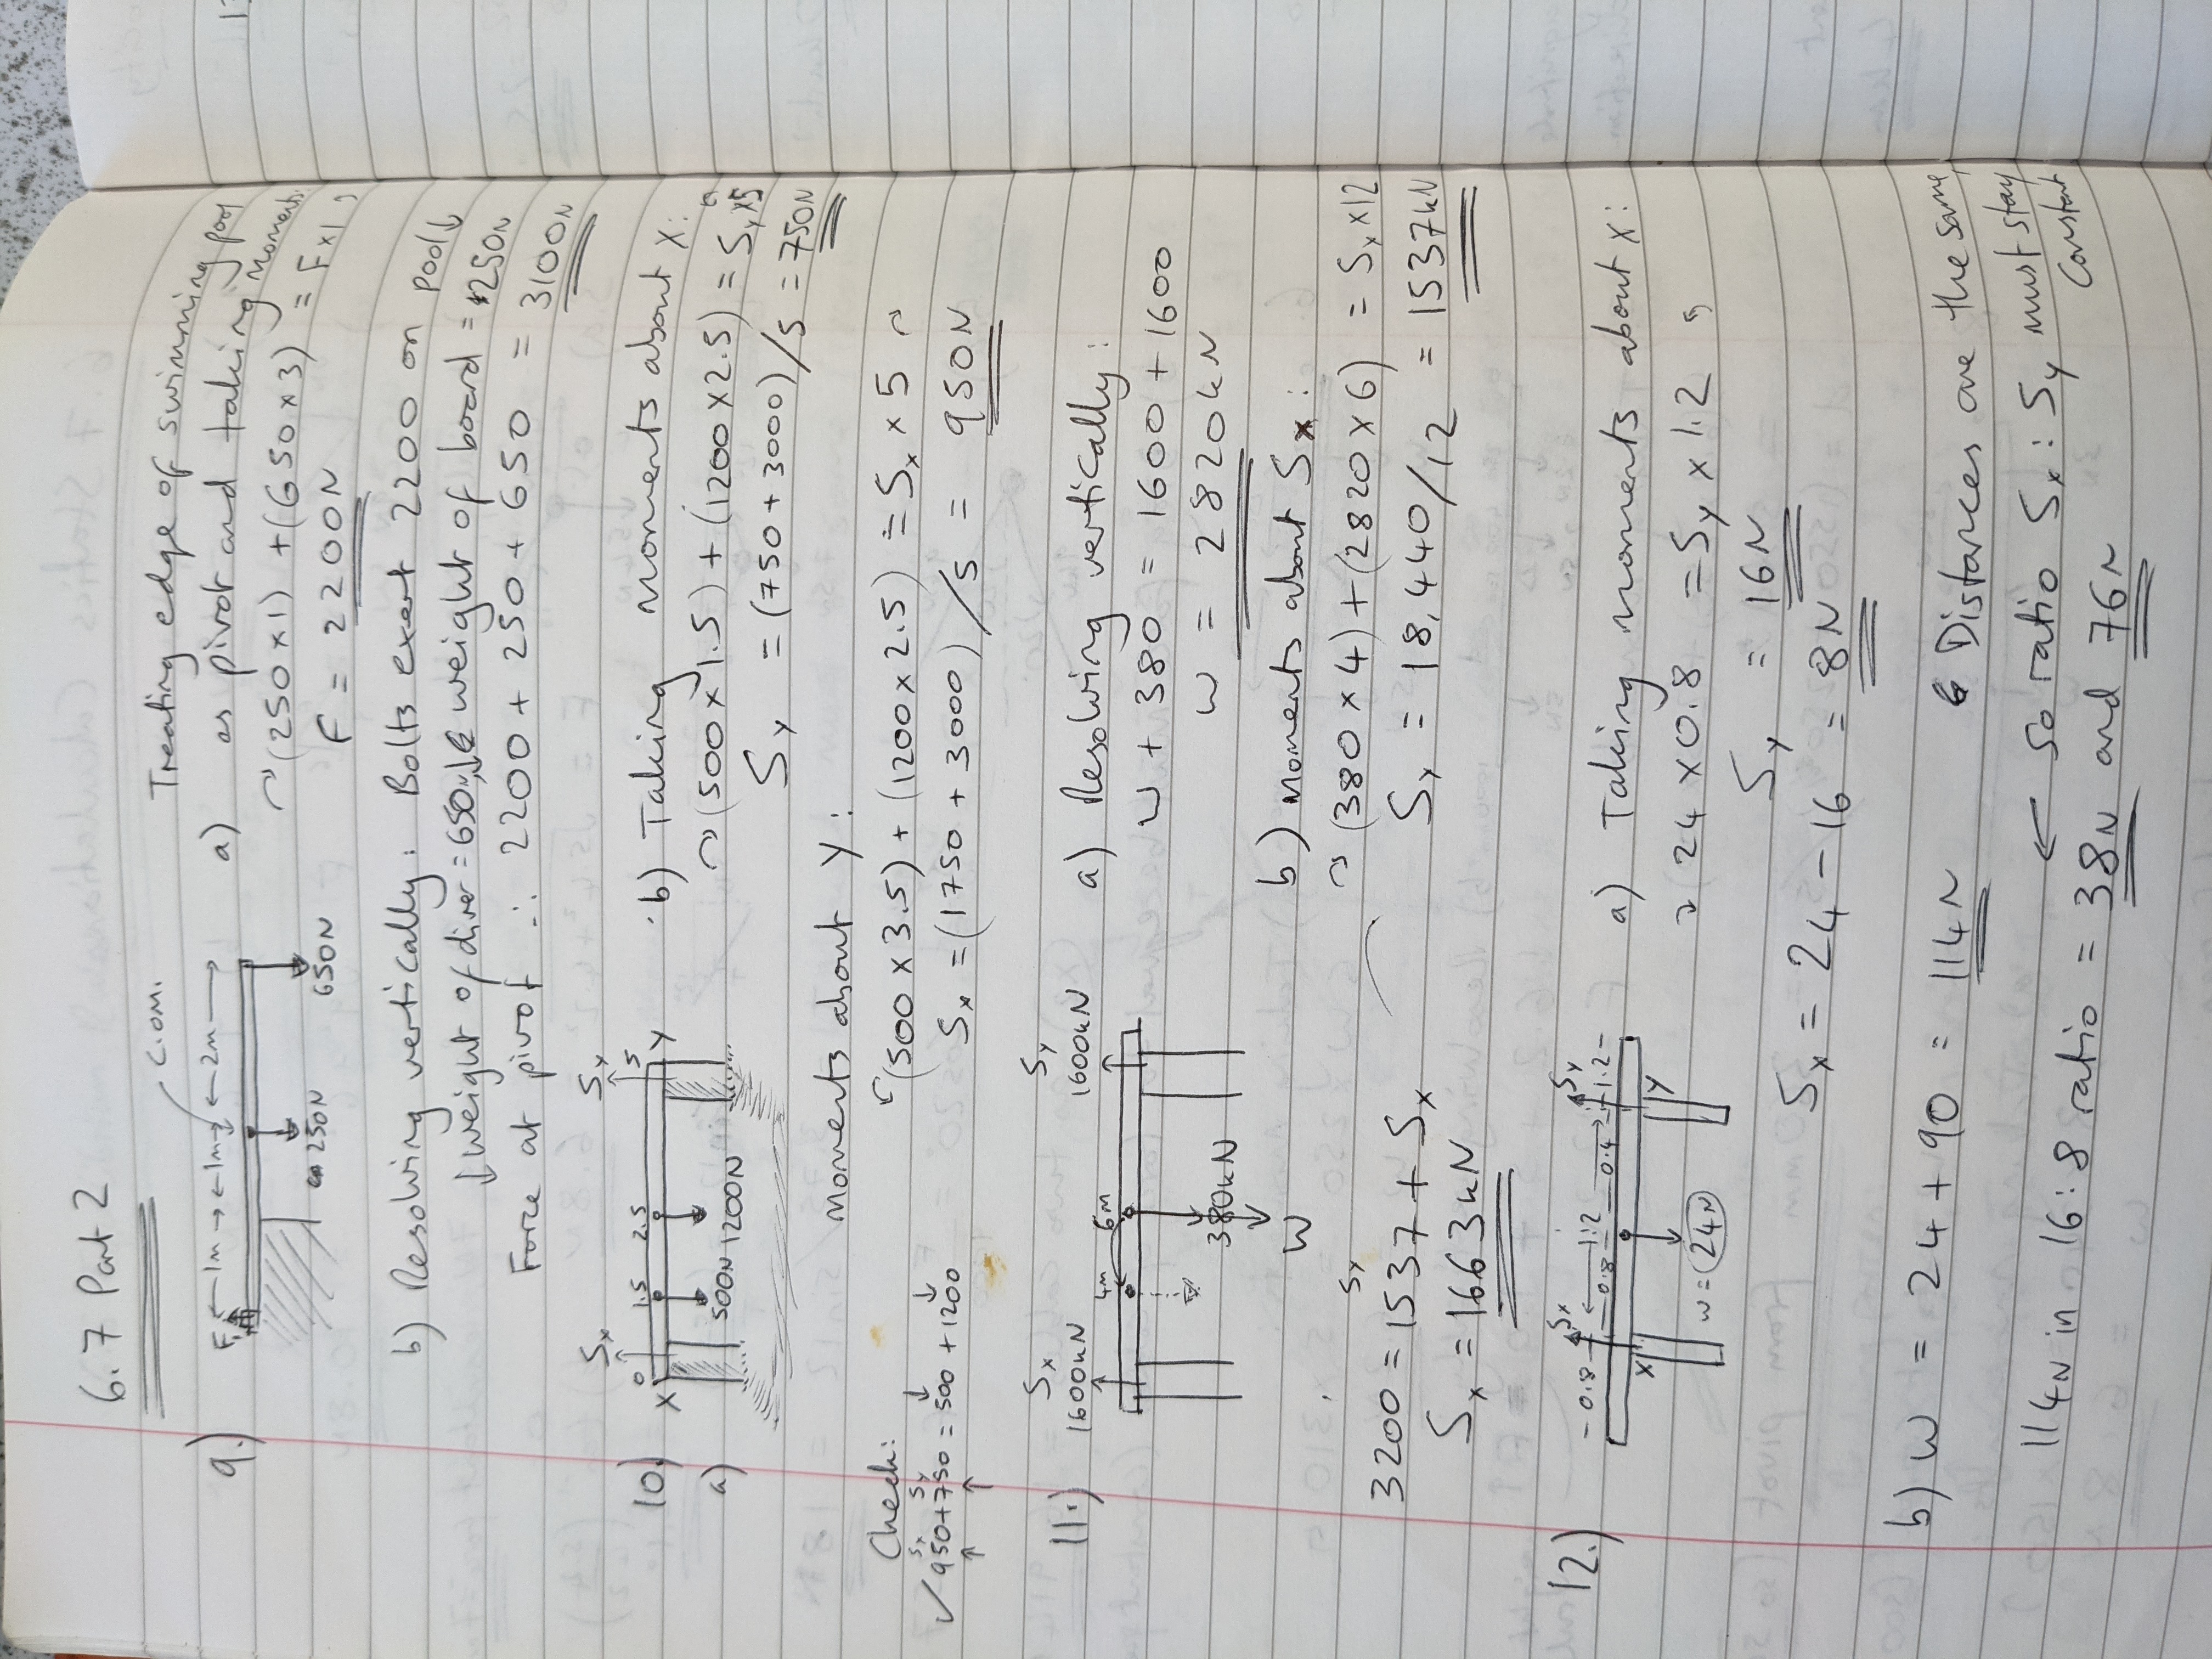 6.7 Part 2
9.)
F 1m 1m 2m C.O.M.
250N 650N
a) Treating edge of swimming pool
as pivot and taking moments:
(250 x 1) + (650 x 3) = F x 1
F = 2200N
b) Resolving vertically: Bolts exert 2200 on pool↓
↓weight of diver = 650N,↓ weight of board = 250N
Force at pivot ∴ 2200 + 250 + 650 = 3100N
10.)
a)
Sx Sy
0 1.5 2.5 5
X Y
500N 1200N
b) Taking moments about X:
(500 x 1.5) + (1200 x 2.5) = Sy x 5
Sy = (750 + 3000)/5 = 750N
Moments about Y:
(500 x 3.5) + (1200 x 2.5) = Sx x 5
Sx = (1750 + 3000)/5 = 950N
Check:
Sx Sy
✓ 950 + 750 = 500 + 1200
11.)
Sx Sy
1600kN 1600kN
4m 6m
380kN
W
a) Resolving vertically:
W + 380 = 1600 + 1600
W = 2820kN
b) Moments about Sx:
(380 x 4) + (2820 x 6) = Sy x 12
Sy = 18,440/12 = 1537kN
Sy
3200 = 1537 + Sx
Sx = 1663kN
12.)
Sx Sy
0.8 1.2 1.2
0.8 0.4
X Y
W = 24N
a) Taking moments about X:
(24 x 0.8 = Sy x 1.2
Sy = 16N
Sx = 24 - 16 = 8N
b) W = 24 + 90 = 114N
Distances are the same,
← so ratio Sx : Sy must stay
constant
114N in 16:8 ratio = 38N and 76N